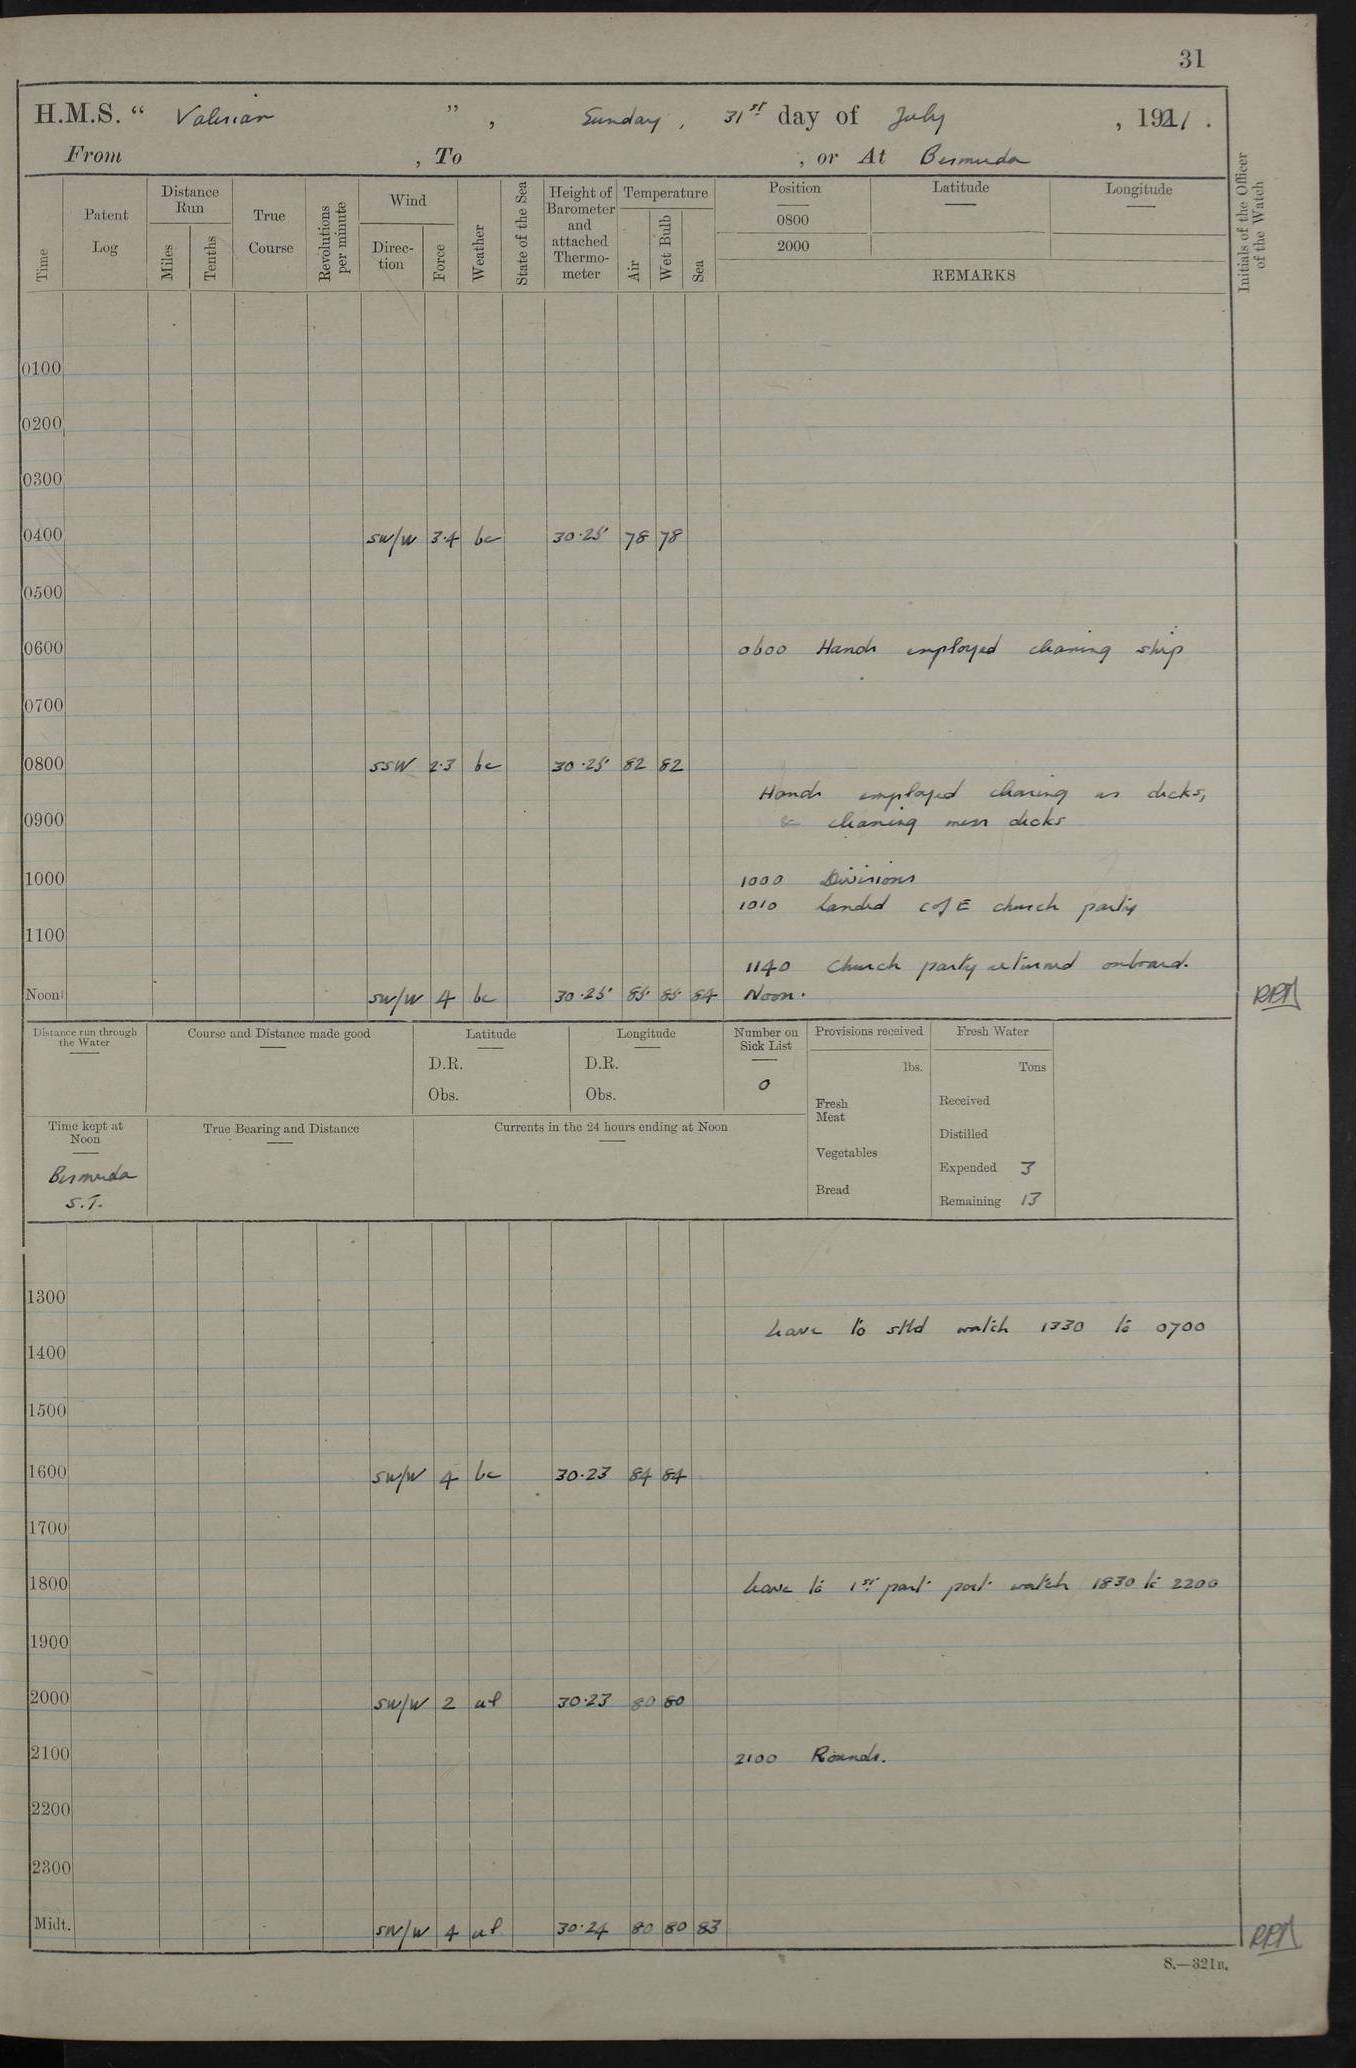 31
H.M.S. “ Valerian ” , Sunday , 31st day of July , 1921 .
From , To , or At Bermuda
Time
Patent Log
Distance Run
Miles
Tenths
True Course
Revolutions per minute
Wind
Direc-tion
Force
Weather
State of the Sea
Height of Barometer and attached Thermo-meter
Temperature
Air
Wet Bulb
Sea
Position
Latitude
Longitude
0800
2000
REMARKS
Initials of the Officer of the Watch
0100
0200
0300
0400 SW/W 3.4 bc 30.25 78 78
0500
0600 0600 Hands employed cleaning ship
0700
0800 SSW 2.3 bc 30.25 82 82
Hands employed clearing decks,
0900 & cleaning mess decks
1000 1000 Divisions
1010 landed C of E church party
1100
1140 Church party returned onboard.
Noon SW/W 4 bc 30.25 85 85 84 Noon.
Distance run through the Water
Course and Distance made good
Latitude
D.R.
Obs.
Longitude
D.R.
Obs.
Number on Sick List
0
Provisions received
lbs.
Fresh Meat
Vegetables
Bread
Fresh Water
Tons
Received
Distilled
Expended 3
Remaining 13
Time kept at Noon
Bermuda
S.T.
True Bearing and Distance
Currents in the 24 hours ending at Noon
1300
leave to stbd watch 1330 to 0700
1400
1500
1600 SW/W 4 bc 30.23 84 84
1700
1800 leave to 1st part port watch 1830 to 2200
1900
2000 SW/W 2 30.23 80 80
2100 2100 Rounds.
2200
2300
Midt. SW/W 4 30.24 80 80 83
S.—321B.